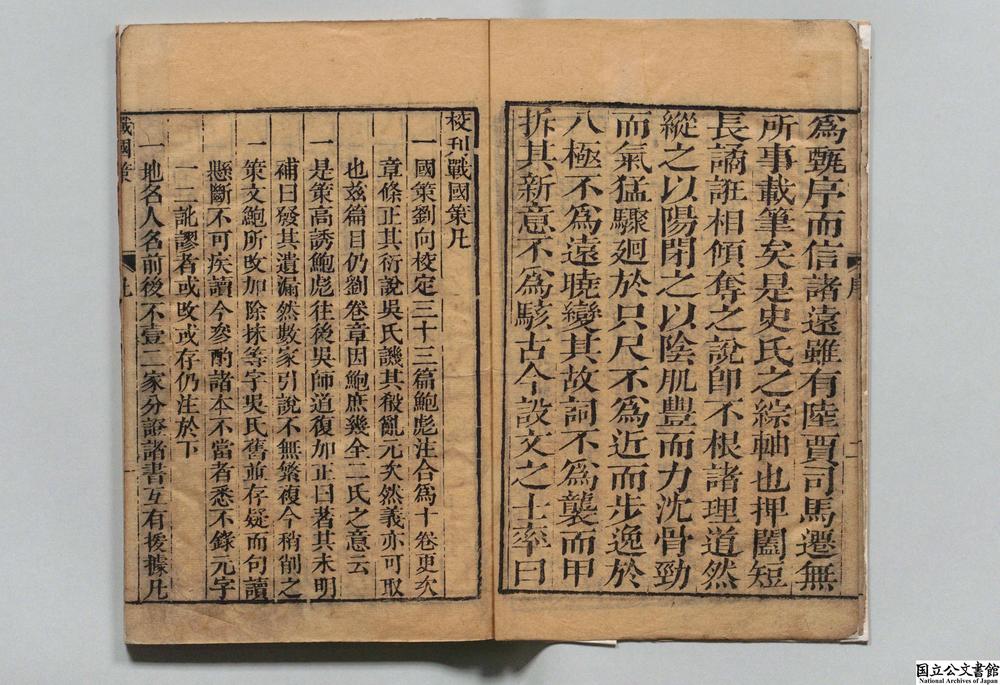 為甄序而信諸遠雖有陸賈司馬遷無
所事載筆矣是史氏之綜軸也押闔短
長譎誑相傾奪之說即不根諸理道然
縱之以陽閉之以陰肌豐而力沈骨勁
而氣猛驟廻於只尺不為近而步逸於
八極不為遠曉變其故詞不為襲而甲
拆其新意不為駭古今設文之士率曰
序
校刊戰國策凡
一國策劉向校定三十三篇鮑彪注合為十卷更次
章條正其衍說吳氏譏其殽亂元次然義亦可取
也茲篇目仍劉卷章因鮑庶幾全二氏之意云
一是策高誘鮑彪往後吳師道復加正曰著其未明
補曰發其遺漏然數家引說不無繁複今稍削之
一策文鮑所改加除抹等字吳氏舊並存疑而句讀
懸斷不可疾讀今參酌諸本不當者悉不錄元字
一二訛謬者或改或存仍注於下
一地名人名前後不壹二家分證諸書互有援據凡
戰國策
凡
国立公文書館
National Archives of Japan